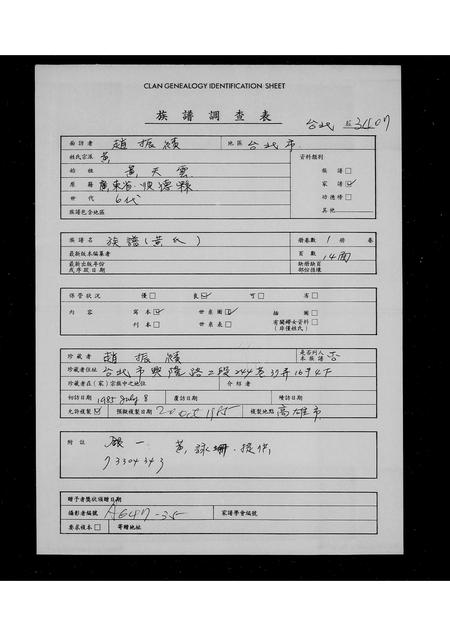 CLAN GENEALOGY IDENTIFICATION SHEET
族譜調查表
台北 3407
採訪者 趙振績 地區 台北市
姓氏宗派 黃 資料類别
始祖 黃天雲 族譜□
原籍 廣東省順德縣 家譜☑
世代 6代 功德榜□
族譜包含地區 其他
族譜名 族譜(黃氏) 册卷數 1 册 卷
最新版本編纂者 頁數 14面
最新出版年份或序跋日期 缺册缺頁部份損壞
保管狀況 優□ 良☑ 可□ 劣□
內容 寫本☑ 世系圖☑ 插圖□
刊本□ 世系表□ 有關婦女資料□(非僅姓氏)
珍藏者 趙振績 是否列入本族譜 否
珍藏者住址 台北市興隆路二段244巷37弄16号4下
珍藏者在(家)宗族中之地位 介紹者
初訪日期 1985 July 8 覆訪日期 隨訪日期
允許複製☑ 預擬複製日期 20 Oct 1985 複製地點 高雄市
附註 一 黃詠珊.提供
93304343
贈予者獎狀核贈日期
攝影者編號 A647-35 家譜學會編號
要求複本□ 寄贈地址